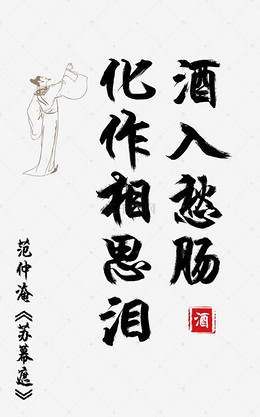 酒入愁肠
化作相思泪
酒
范仲淹《苏幕遮》